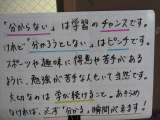 "分からない"は学習のチャンスです。
けれど"分かろうとしない"はピンチです。
スポーツや趣味に得意や苦手がある
ように、勉強が苦手な人もいて当然です。
大切なのは学び続けること。あきらめ
なければ、必ず"分かる"瞬間が来ます!